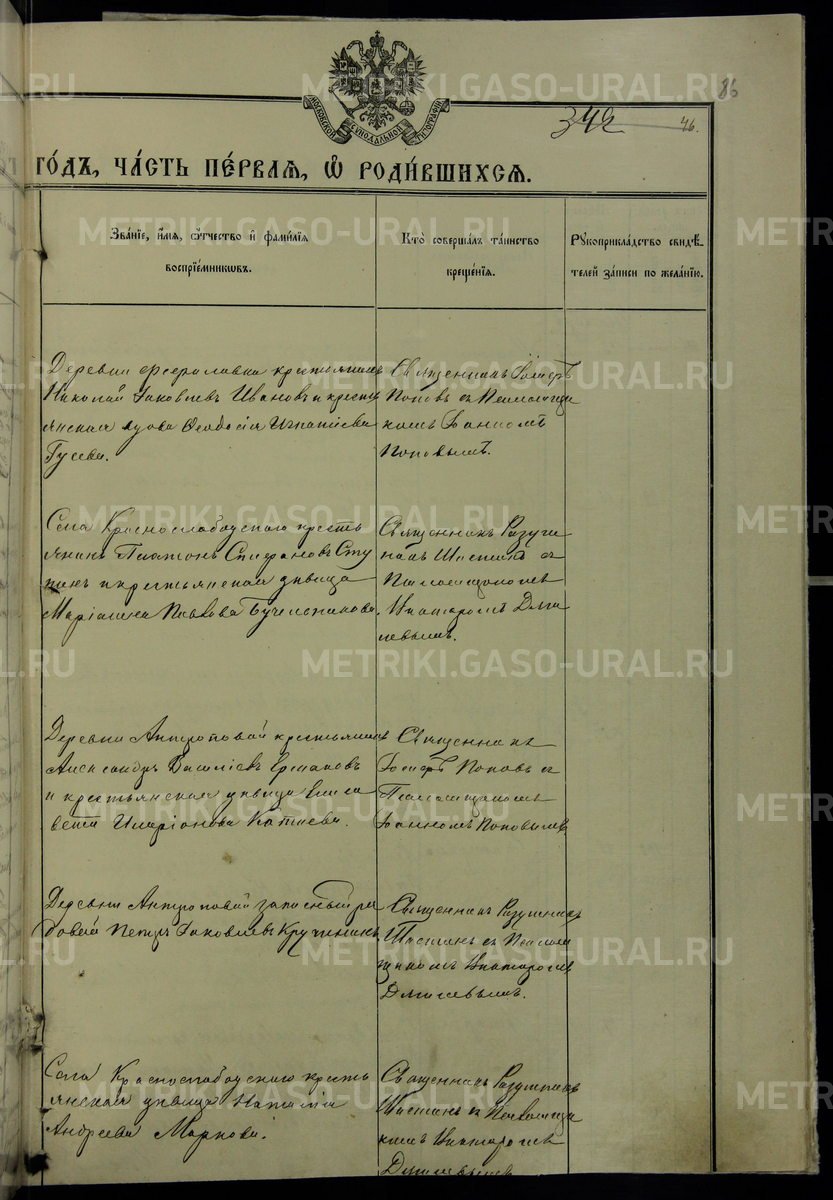 86
МОСКОВСКОЙ СѴНОДАЛЬНОЙ ТИПОГРАФІИ
342 46.
ГО́ДЪ, ЧА́СТЬ ПЕ́РВАѦ, Ѡ҆ РОДИ́ВШИХСѦ.
Зва́нїе, и҆́мѧ, ѻ҆́тчество и҆ фами́лїѧ воспрїе́мникѡвъ.
Кто̀ соверша́лъ та́инство креще́нїѧ.
Рꙋкоприкла́дство свидѣ́телей за́писи по жела́нїю.
Деревни крестьянинъ
Николай Яковлевъ Ивановъ и кресть
янская вдова Ѳеодосія Игнатіева
Гусева.
Священникъ
Поповъ съ Псаломщи
комъ Іоанномъ
Поповымъ.
Села Краснослободского кресть
янинъ Платонъ Спиридоновъ Сту
пинъ и крестьянская дѣвица
Маріамна Павлова
Священникъ Разумникъ
Шастинъ съ
Псаломщикомъ
Дяги
левымъ.
Деревни Антроповой крестьянинъ
Александръ Василіевъ Ермаковъ
и крестьянская дѣвица Елиса
вета Иларіонова Катаева.
Священникъ
Поповъ съ
Псаломщикомъ
Іоанномъ Поповымъ
Деревни Антроповой запасный ря
довой Петръ Яковлевъ
Священникъ Разумникъ
Шастинъ съ Псалом
щикомъ
Дягилевымъ.
Села Краснослободского кресть
янская дѣвица Наталія
Андреева Маркова.
Священникъ Разумникъ
Шастинъ съ Псаломщи
комъ
Дягилевымъ
METRIKI.GASO-URAL.RU